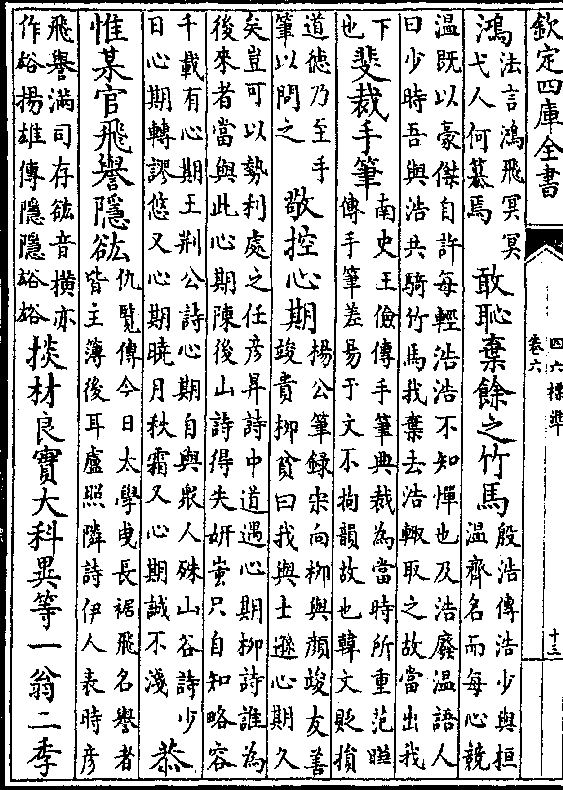 欽定四庫全書
四六標準
卷六
十三
鴻
法言鴻飛冥冥
弋人何慕焉
敢恥棄餘之竹馬
殷浩傳浩少與桓
溫齊名而每心競
溫既以豪傑自許每輕浩浩不知憚也及浩廢溫語人
曰少時吾與浩共騎竹馬我棄去浩輒取之故當出我
下
也
斐裁手筆
南史王儉傳手筆典裁為當時所重范曄
傳手筆差易于文不拘韻故也韓文貶損
道徳乃至手
筆以問之
敬控心期
楊公筆録宋向柳與顔竣友善
竣貴柳貧曰我與士遜心期久
矣豈可以勢利處之任彦昇詩中道遇心期柳詩誰為
後來者當與此心期陳後山詩得失妍蚩只自知略容
千載有心期王荆公詩心期自與衆人殊山谷詩少
日心期轉謬悠又心期曉月秋霜又心期誠不淺
恭
惟某官飛譽隱紘
仇覽傳今日太學曵長裾飛名譽者
皆主簿後耳盧照隣詩伊人表時彦
飛譽滿司存紘音横亦
作谹揚雄傳隱隱谹谹
掞材良實大科異等一翁二季